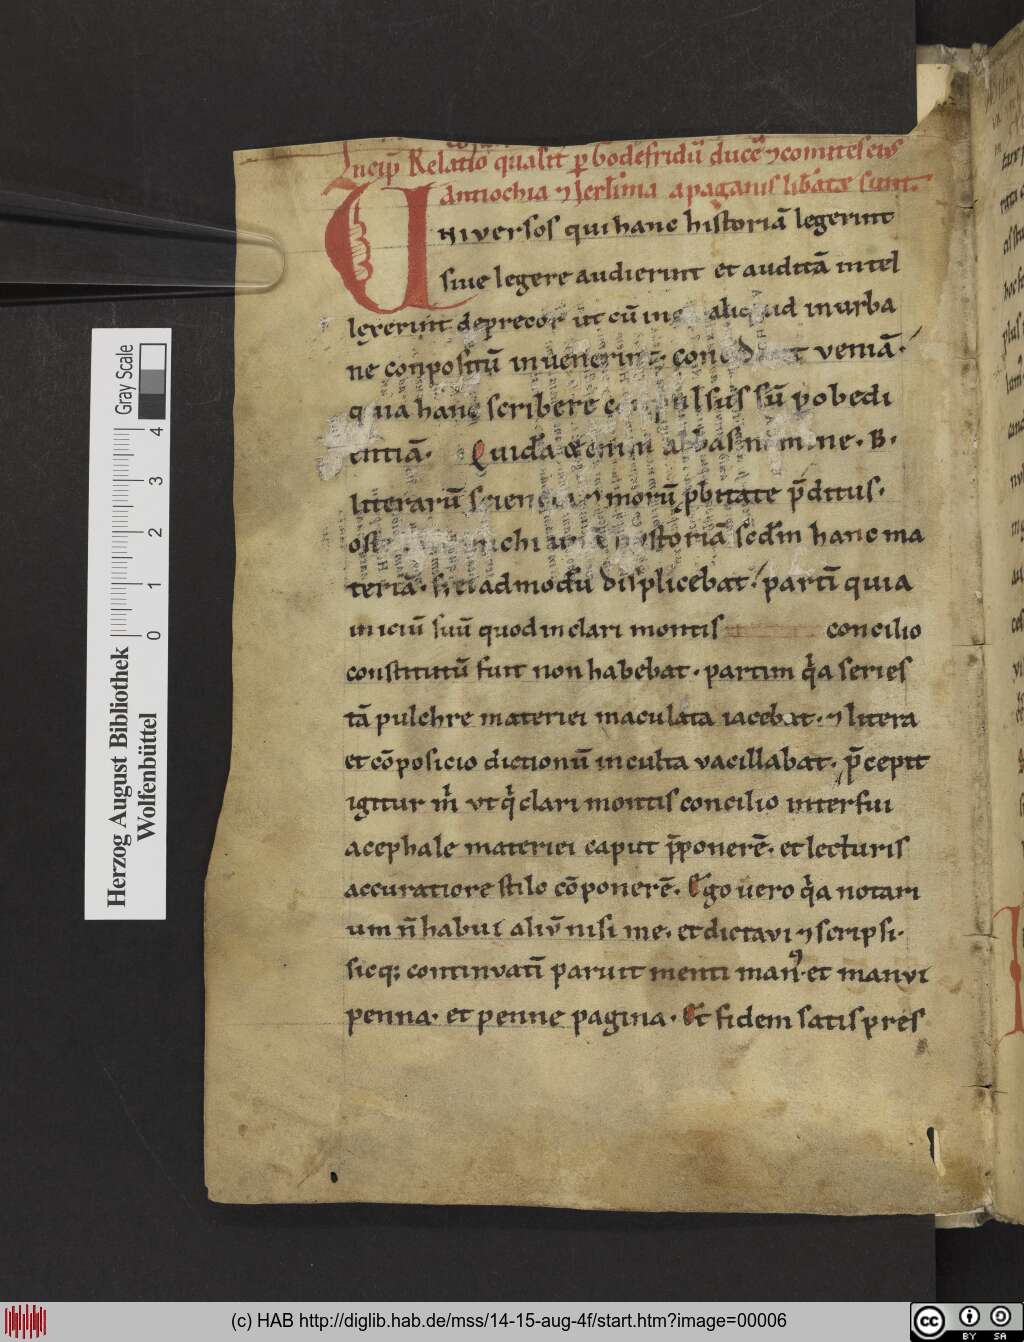 Incip̄ Relatio qualit̄ p̱ Godefridū ducē ⁊ comites eiꝰ
Antiochia ⁊ Ierłima a paganis libatæ sunt.
UNiversos qui hanc historiā legerint
siue legere audierint et auditā intel
lexerint deprecor ut cū in ea aliquid inurba
ne conpositū inuenerint concedant veniā.
quia hanc scribere compulsus sū p obedi
entiā. Quidā etenim abbas nomine. B.
literarū scientia ⁊ morū p̱bitate p̄ditus.
michi unā historiā scđm hanc ma
teriā. s; ei admodū displicebat. partī quia
iniciū suū quod in clari montis concilio
constitutū fuit non habebat. partim qa series
tā pulchre materiei maculata iacebat. ⁊ litera
et cōposicio dictionū inculta vacillabat. p̄cepit
igitur m vt q clari montis concilio interfui
acephale materiei caput p̄ponerē. et lecturis
accuratiore stilo cōponerē. Ego uero qa notari
um n̄ habui aliū nisi me. et dictavi ⁊ scripsi.
sicq; continvatī paruit menti manꝰ. et manvi
penna. et penne pagina. Et fidem satis pres
Gray Scale
0 1 2 3 4
Herzog August Bibliothek
Wolfenbüttel
(c) HAB http://diglib.hab.de/mss/14-15-aug-4f/start.htm?image=00006
cc BY SA